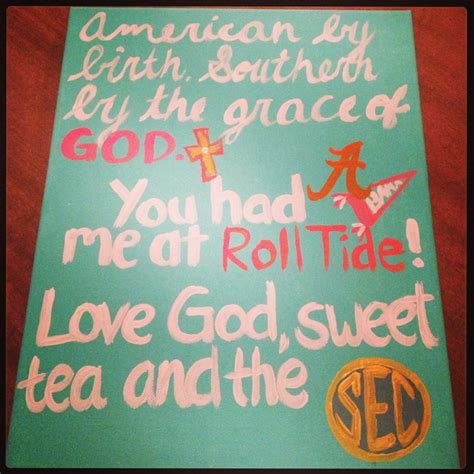 American by
birth. Southern
by the grace of
GOD.
A
You had
me at Roll Tide!
Love God, sweet
tea and the SEC